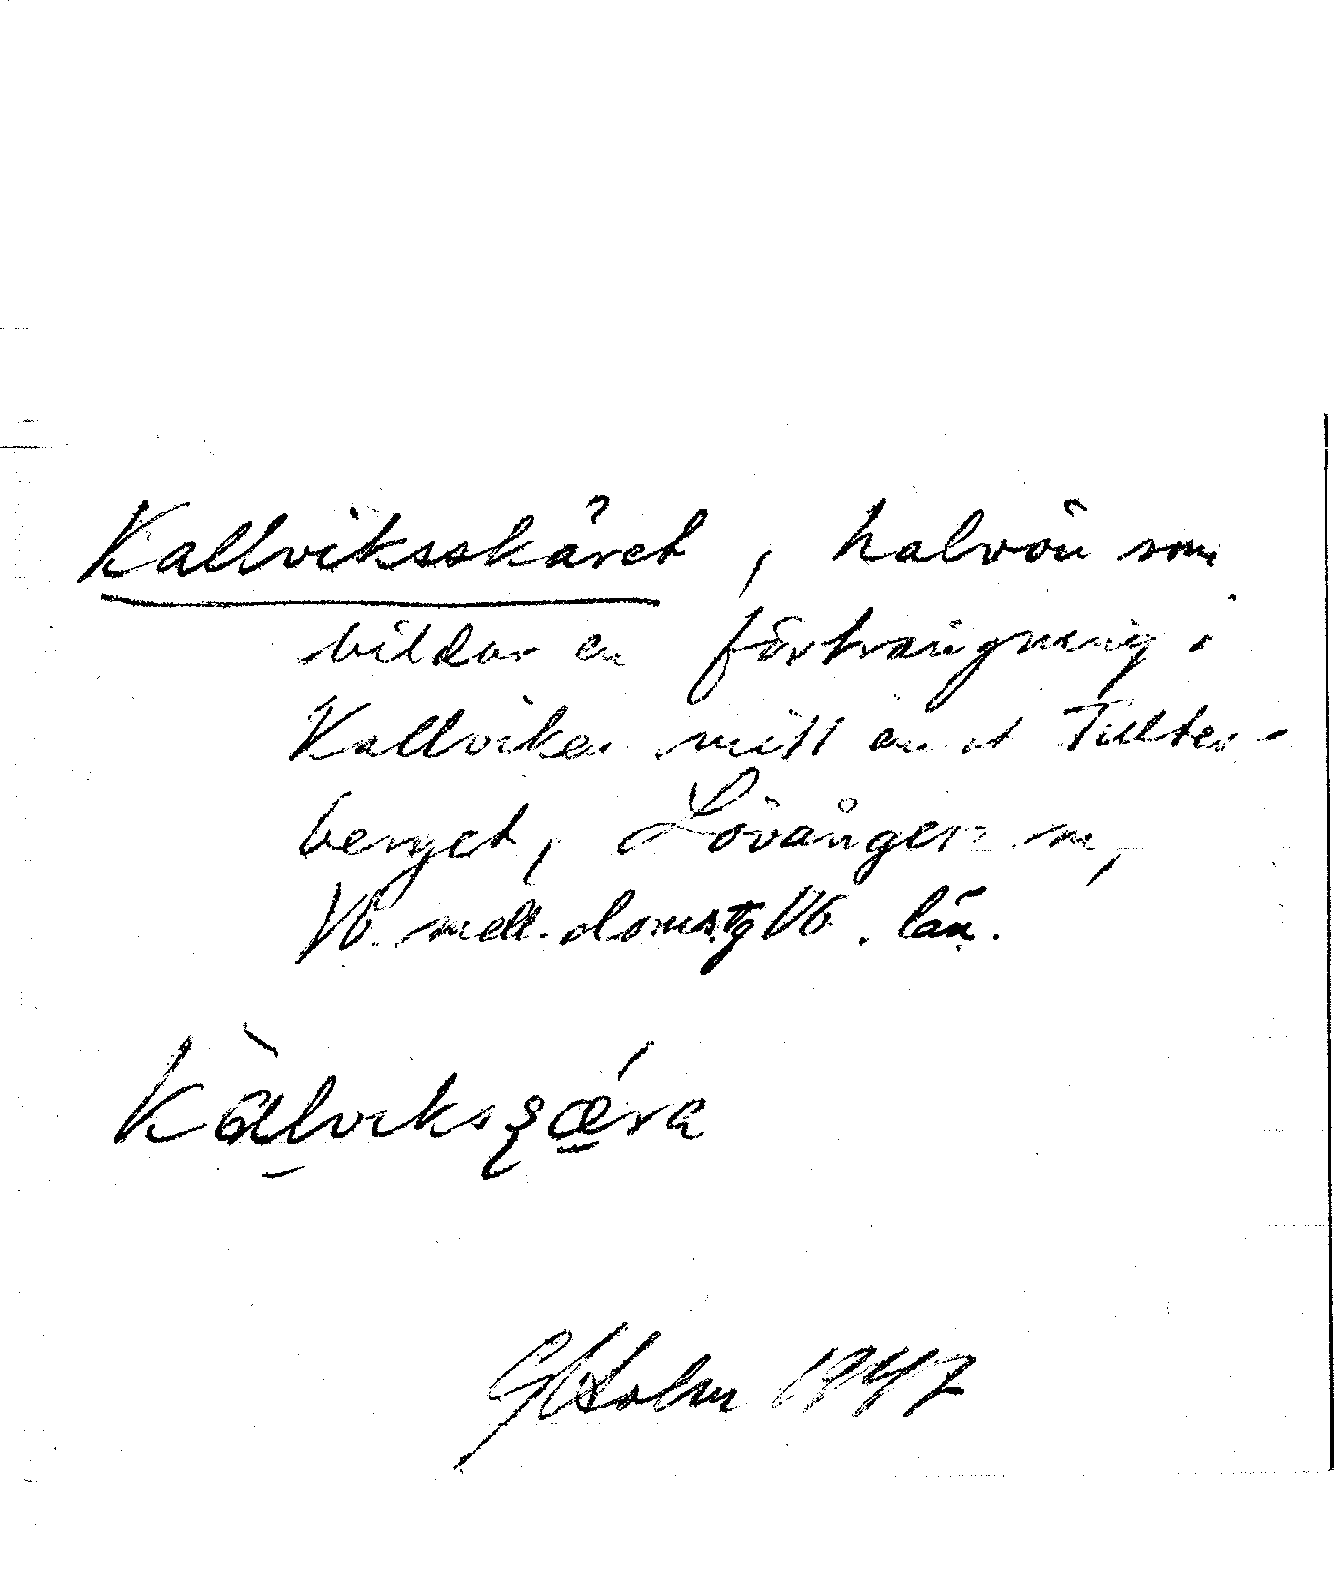 Kallviksskäret, halvön som
bildar en förträngning i
Kallviken mitt em ot Tullter-
berget, Lövångers sn,
Vb. mell. domstg Vb. län.
Kàllviksʂǽra
Holm 1947